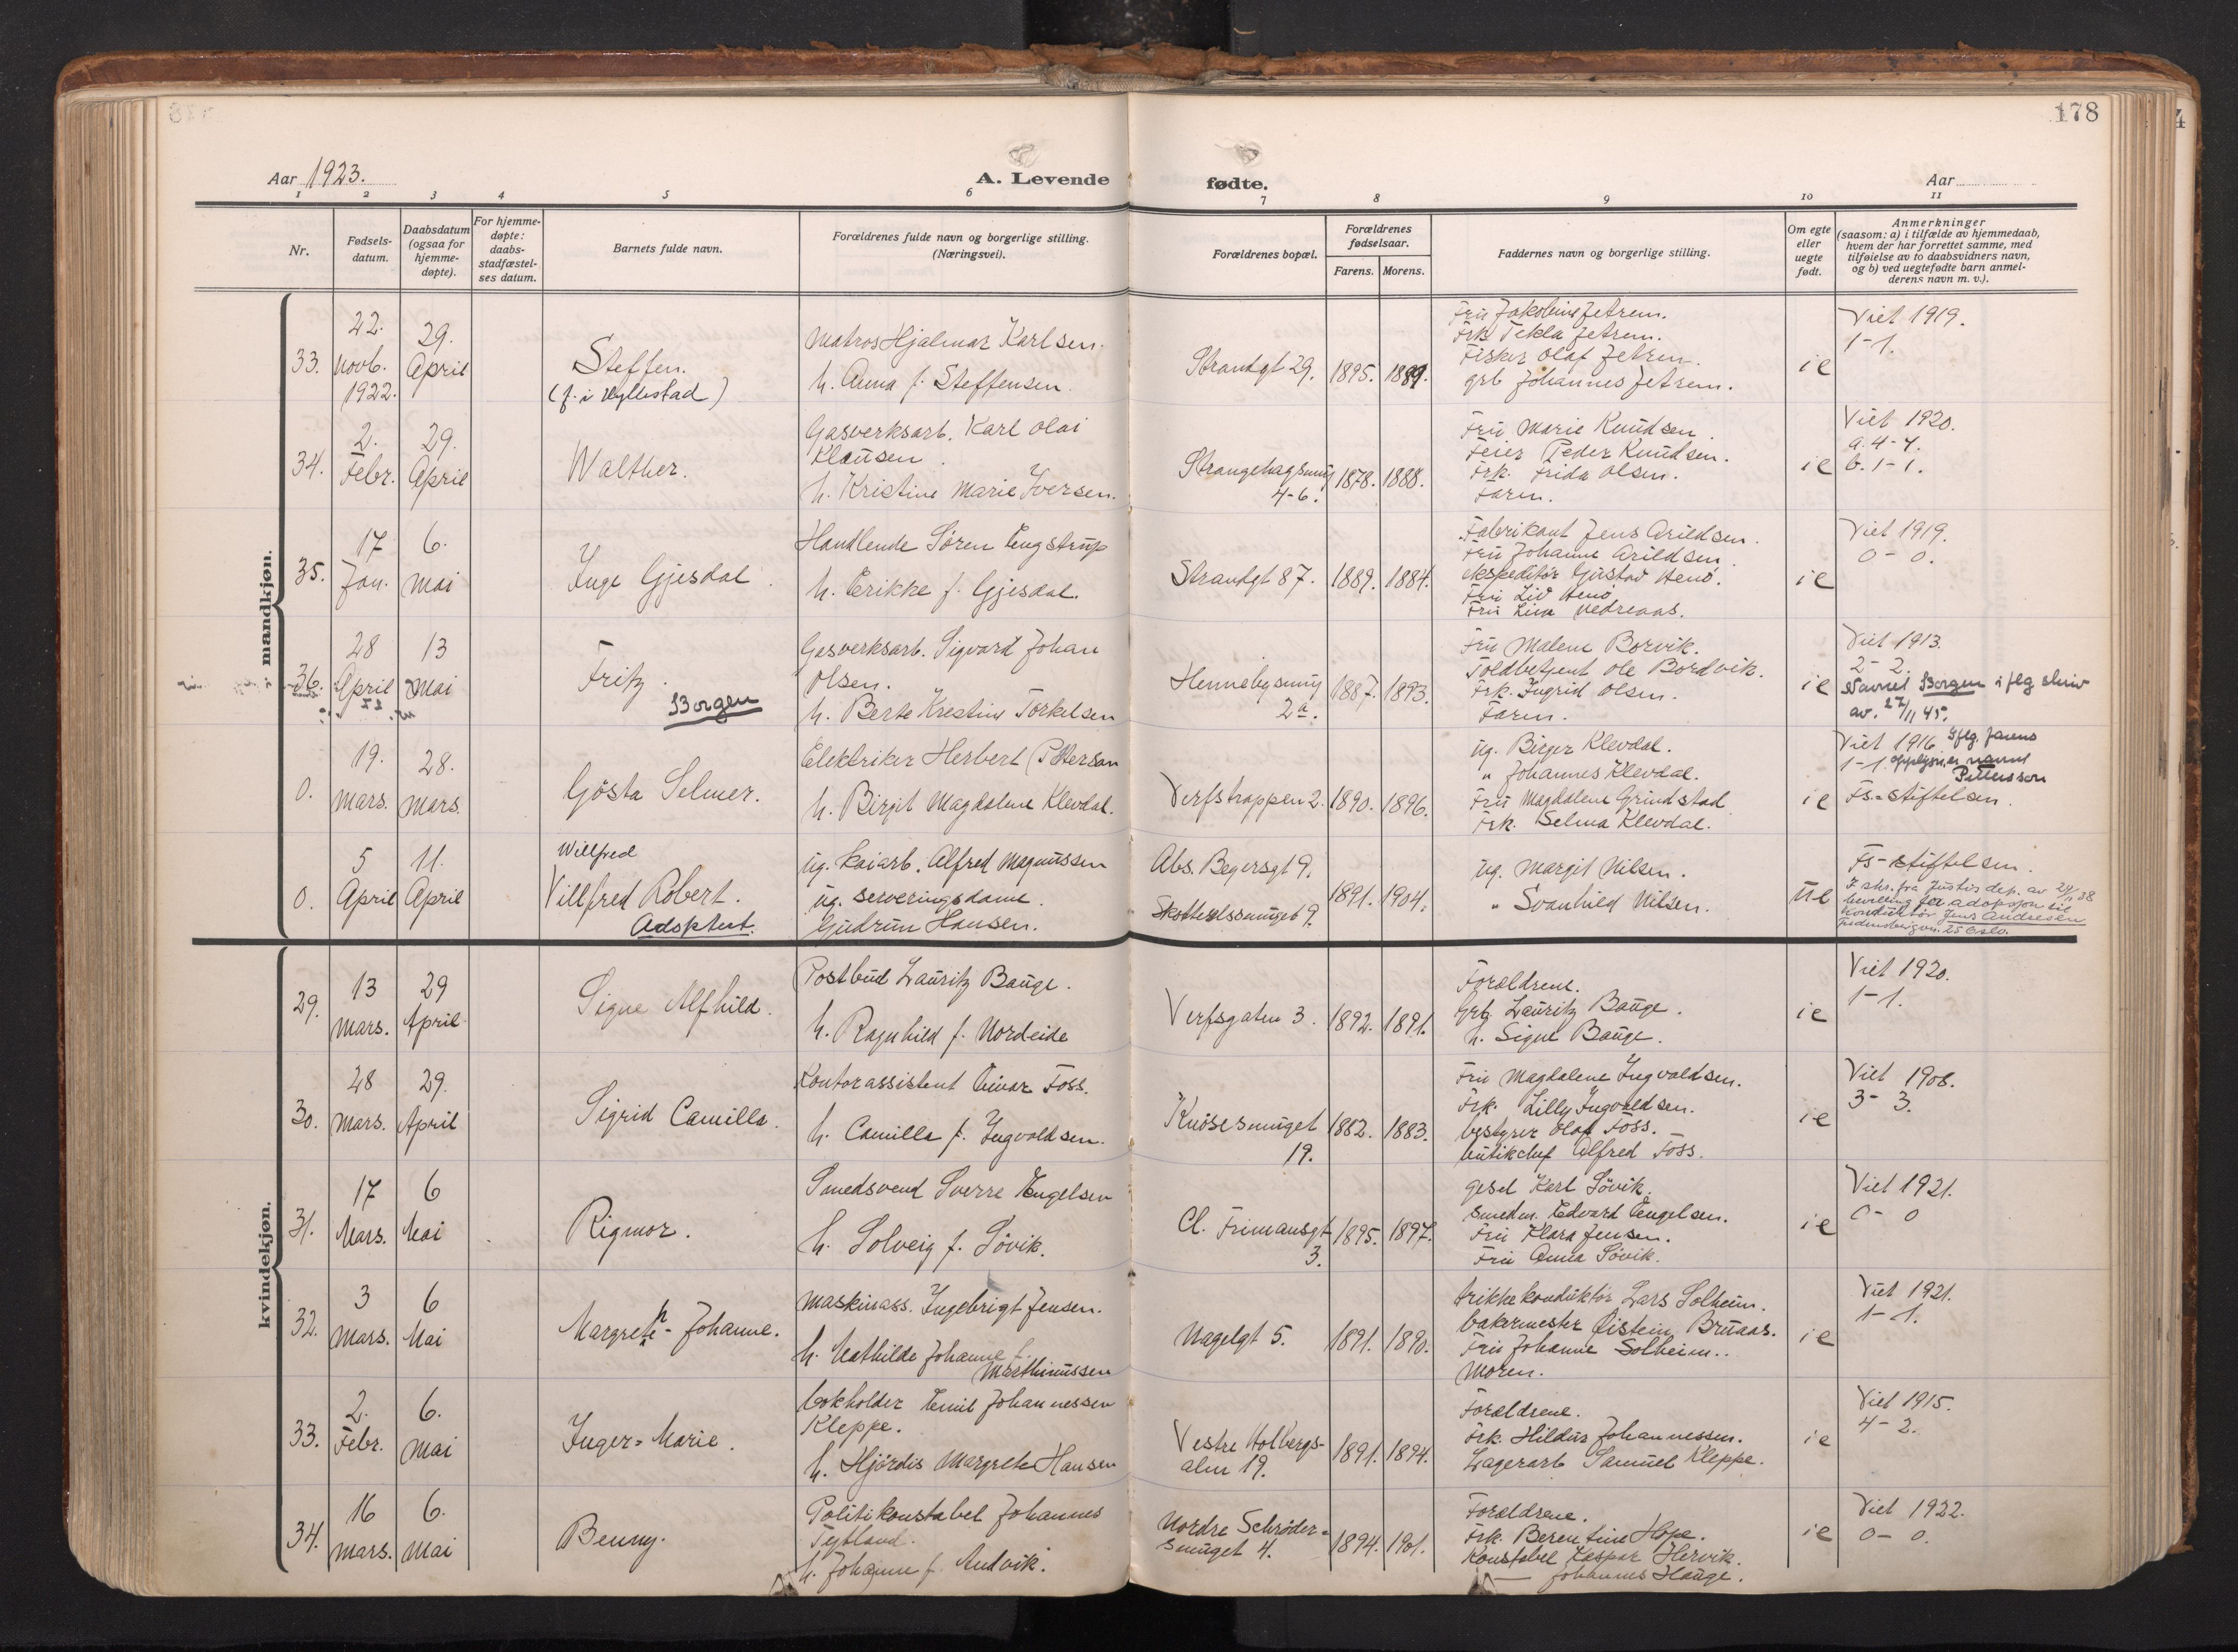 178
Aar 1923.
A. Levende
fødte.
Aar
1 2 3 4 5 6 7 8 9 10 11
Nr.
Fødsels-
datum.
Daabsdatum
(ogsaa for
hjemme-
døpte).
For hjemme-
døpte:
daabs-
stadfæstel-
ses datum.
Barnets fulde navn.
Forældrenes fulde navn og borgerlige stilling.
(Næringsvei).
Forældrenes bopæl.
Forældrenes
fødselsaar.
Farens. Morens.
Faddernes navn og borgerlige stilling.
Om egte
eller
uegte
født.
Anmerkninger
(saasom: a) i tilfælde av hjemmedaab,
hvem der har forrettet samme, med
tilføielse av to daabsvidners navn,
og b) ved uegtefødte barn anmel-
derens navn m. v.).
mandkjøn.
33.
22.
Novb.
1922.
29.
April
Steffen.
(f. i Hyllestad)
Matros Hjalmar Karlsen.
h. Anna f. Steffensen.
Strandgt 29.
1895. 1889.
Fru Jakobine Jetrem.
Frk Tekla Jetrem.
Fisker Olaf Jetrem.
grb Johannes Jetrem.
ie
Viet 1919.
1-1.
34.
2.
Febr.
29.
April
Walther.
Gasverksarb. Karl Olai
Klausen.
h. Kristine Marie Iversen.
Strangehagsmug
4-6.
1878. 1888.
Fru Marie Knudsen.
Feier Peder Knudsen.
Frk. Frida Olsen.
Faren.
ie
Viet 1920.
a. 4-4.
b. 1-1.
35.
17
Jan.
6.
Mai
Inge Gjesdal.
Handlende Søren Engstrup
h. Erikke f. Gjesdal.
Strandgt 87.
1889. 1884.
Fabrikant Jens Arildsen.
Fru Johanne Arildsen.
ekspeditør Gustav
Fru Liv
Fru Lina Vedreaas.
ie
Viet 1919.
0-0.
36.
28
April
13
Mai
Fritz.
Borgen
Gasverksarb. Sigvard Johan
Olsen.
h. Berte Krestine Torkelsen
Hennebysmug
2a.
1887. 1893.
Fru Malene Borvik.
Toldbetjent Ole Bordvik.
Frk. Ingrid Olsen.
Faren.
ie
Viet 1913.
2-2.
Navnet Borgen iflg skriv
av. 27/11 45.
0.
19.
Mars.
28.
Mars.
Gösta Selmer.
Elektriker Herbert Pettersson
h. Birgit Magdalene Klevdal.
Verfstrappen 2.
1890. 1896.
ug. Birger Klevdal.
" Johannes Klevdal.
Fru Magdalene Grindstad
Frk. Selma Klevdal.
ie
Viet 1916. Iflg. farens
1-1. opplysn. er navnet
Pettersson
Fs-stiftelsen.
0.
5
April
11.
April
Willfred
Villfred Robert.
Adoptert.
ug. kaiarb. Alfred Magnussen
ug. serveringsdame.
Gudrun Hansen.
Abs. Beyersgt 9.
Skottedssmuget 9.
1891. 1904.
ug. Margit Nilsen.
" Svanhild Nilsen.
ue
Fs-stiftelsen.
I skr. fra Justisdep. av 24/11 38
bevilling for adopsjon til
Konduktør Jens Andresen
Fredensborgvn. 25 Oslo.
kvindekjøn.
29.
13
Mars.
29
April
Signe Alfhild.
Postbud Lauritz Bauge.
h. Ragnhild f. Nordeide
Verfsgaten 3.
1892. 1891.
Forældrene.
Grb. Lauritz Bauge.
h. Signe Bauge.
ie
Viet 1920.
1-1.
30.
28
Mars.
29.
April
Sigrid Camilla.
Kontorassistent Einar Foss.
h. Camilla f. Ingvoldsen.
Knøsesmuget
19.
1882. 1883.
Fru Magdalene Ingvaldsen.
Frk. Lilly Ingvaldsen.
bestyrer Olaf Foss.
butikchef Alfred Foss.
ie
Viet 1908.
3-3.
31.
17
Mars.
6
Mai
Rigmor.
Smedsvend Sverre Engelsen
h. Solveig f. Søvik.
Cl. Frimansgt
3.
1895. 1897.
gesel Karl Søvik.
smedm. Edvard Engelsen.
Fru Klara Jensen.
Fru Anna Søvik.
ie
Viet 1921.
0-0
32.
3
Mars.
6
Mai
Margrethe-Johanne.
Maskinass. Ingebrigt Jensen.
h. Mathilde Johanne f.
Marthinussen
Nagelgt 5.
1891. 1890.
trikkekonduktør Lars Solheim.
bakermester Øistein Bruaas.
Fru Johanne Solheim.
Moren.
ie
Viet 1921.
1-1.
33.
2.
Febr.
6.
Mai
Inger-Marie.
bokholder Emil Johannessen
Kleppe.
h. Hjördis Margrete Hansen
Vestre Holbergs-
alm 19.
1891. 1894.
Forældrene.
Frk. Hildur Johannessen.
Lagerarb Samuel Kleppe.
ie
Viet 1915.
4-2.
34.
16
Mars.
6.
Mai
Benny.
Politikonstabel Johannes
Tytland.
h. Johanne f. Andvik.
Nordre Schrøder-
smuget 4.
1894. 1901.
Forældrene.
Frk. Berentine Hope.
Konstabel Kaspar Hervik.
Johannes Hauge.
ie
Viet 1922.
0-0.